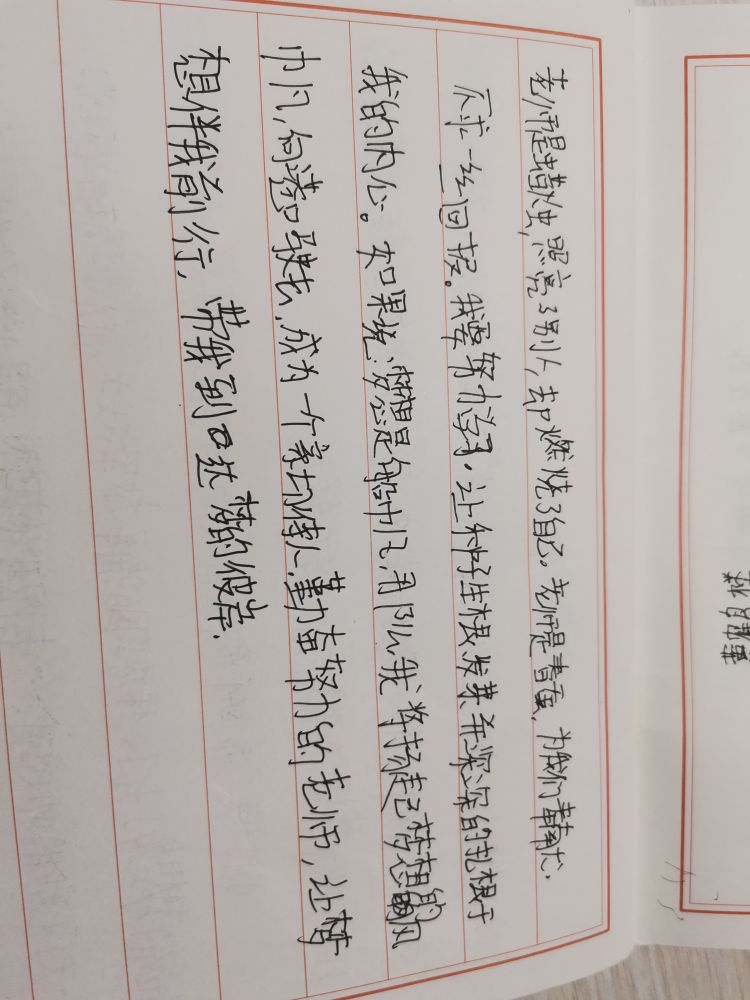 老师是蜡烛,照亮了别人,却燃烧了自己。老师是春蚕,为我们奉献尤。
不求一丝回报。我要努力学习,让种子生根发芽并深深的扎根于
我的内心。如果说:梦想是船帆,那么我将扬起梦想的风
帆,向港口驶去,成为一个亲切待人,勤奋努力的老师,让梦
想伴我前行,带我到达梦的彼岸.